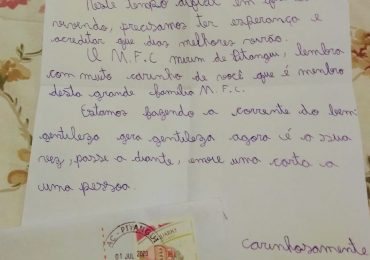 Neste tempo difícil em que
vivendo, precisamos ter esperança e
acreditar que dias melhores virão.
O M.F.C mirim de Pitangui, lembra
com muito carinho de você que é membro
desta grande família M.F.C.
Estamos fazendo a corrente do bem
gentileza gera gentileza agora é a sua
vez, passe a diante, envie uma carta a
uma pessoa.
carinhosamente
AC-PITANG
01 JUL 2020